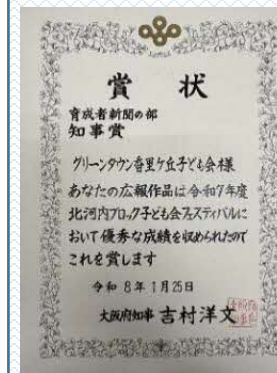 賞状
育成者新聞の部
知事賞
グリーンタウン香里ケ丘子ども会様
あなたの広報作品は令和7年度
北河内ブロック子ども会フェスティバルに
おいて優秀な成績を収められたので
これを賞します
令和8年1月25日
大阪府知事 吉村洋文